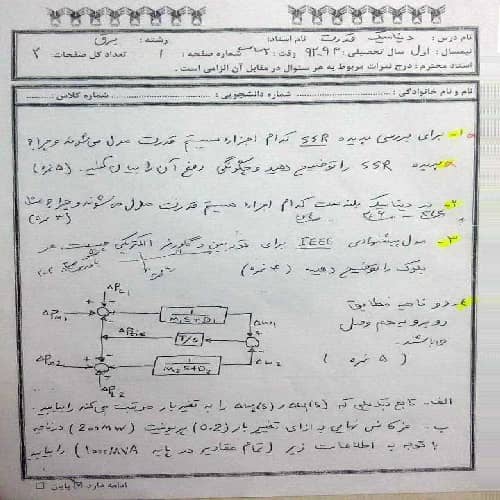 نام درس: دینامیک قدرت نام استاد: رشته: برق
نیمسال: اول سال تحصیلی: ۹۳-۹۲ وقت: شماره صفحه: ۱ تعداد کل صفحات ۲
استاد محترم: درج نمرات مربوط به هر سئوال در مقابل آن الزامی است.
نام و نام خانوادگی: شماره دانشجویی: شماره کلاس:
۱- برای بررسی پدیده SSR کدام اجزاء سیستم قدرت مدل می‌شوند و چرا؟
پدیده SSR را توضیح دهید و چگونگی رفع آن را بیان کنید. (۵ نمره)
۲- در دینامیک بلندمدت کدام اجزاء سیستم قدرت مدل می‌شوند و چرا؟
(۳ نمره)
۳- مدل پیشنهادی IEEE برای توربین و گاورنر الکتریکی چیست هر
بلوک را توضیح دهید (۴ نمره)
۴- دو ناحیه مطابق
روبرو به هم وصل
(۵ نمره)
ΔP_L1
ΔP_m1
1/(M₁S+D₁)
Δω₁
ΔP_tie
T/S
ΔP_m2
1/(M₂S+D₂)
Δω₂
ΔP_L2
الف- تابع تبدیلی که Δω₁(s) و Δω₂(s) را به تغییر بار مرتبط می‌کند را بیابید.
ب- فرکانس نهایی به ازای تغییر بار (0.2) پریونیت (200MW) در ناحیه
با توجه به اطلاعات زیر (تمام مقادیر در پایه 1000MVA) را بیابید
ادامه دارد پایان